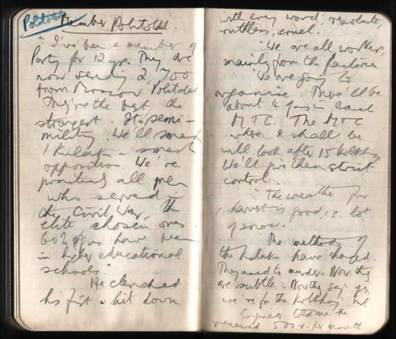 Politotdel
Member Politotdel.
"I've been a member of
Party for 12 yrs. They are
now sending 2,700
from Moscow Politotdel
They're the best, the
strongest. It's semi-
military. We'll smash
kulaks & smash
opposition. We're
practically all men
who served in
the Civil War, the
elite chosen ones
60% of us have been
in higher educational
schools."
He clenched
his fist & hit down
with every word, resolute,
ruthless, cruel.
"We are all workers,
mainly from the factories.
We are going to
organise. There'll be
about 4 of us in each
MTC. The MTC
where I shall be
will look after 15 kolkhoz
We'll give them strict
control.
"The weather for
harvest is good, is lot
of snow.
"The methods of
the kulaks have changed.
They used to murder. Now they
are subtle. Now they say: yes,
we're for the kolkhoz, but
received 500 r. per month